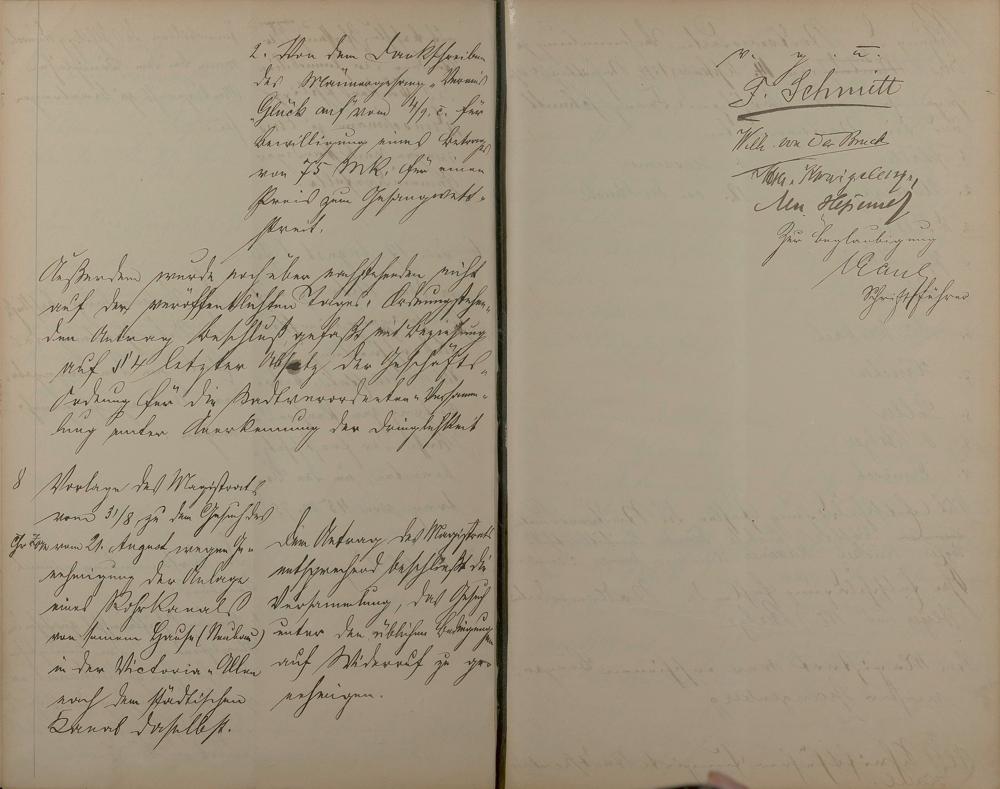 2. Von dem Dankschreiben
des Männergesang-Vereins
"Glück auf" vom 4/9. c. für
Bewilligung eines Betrages
von 75 Mk. für einen
Preis zum Gesangwett-
streit.
Außerdem wurde noch über nachstehenden nicht
auf der veröffentlichten Tages-Ordnung stehen-
den Antrag Beschluß gefaßt mit Beziehung
auf § 4 letzter Absatz der Geschäfts-
Ordnung für die Stadtverordneten-Versamm-
lung unter Anerkennung der Dringlichkeit
8 Vorlage des Magistrats
vom 31/8 zu dem Gesuch des
vom 21. August wegen Ge-
nehmigung der Anlage
eines Rohrkanals
von seinem Hause (Neubau)
in der Victoria-Allee
nach dem städtischen
Kanal daselbst.
Dem Antrag des Magistrats
entsprechend beschließt die
Versammlung, das Gesuch
unter den üblichen Bedingungen
auf Widerruf zu ge-
nehmigen.
v. g. u.
F. Schmitt
Wilh. von der Bruck
Zur Beglaubigung
Schriftführer